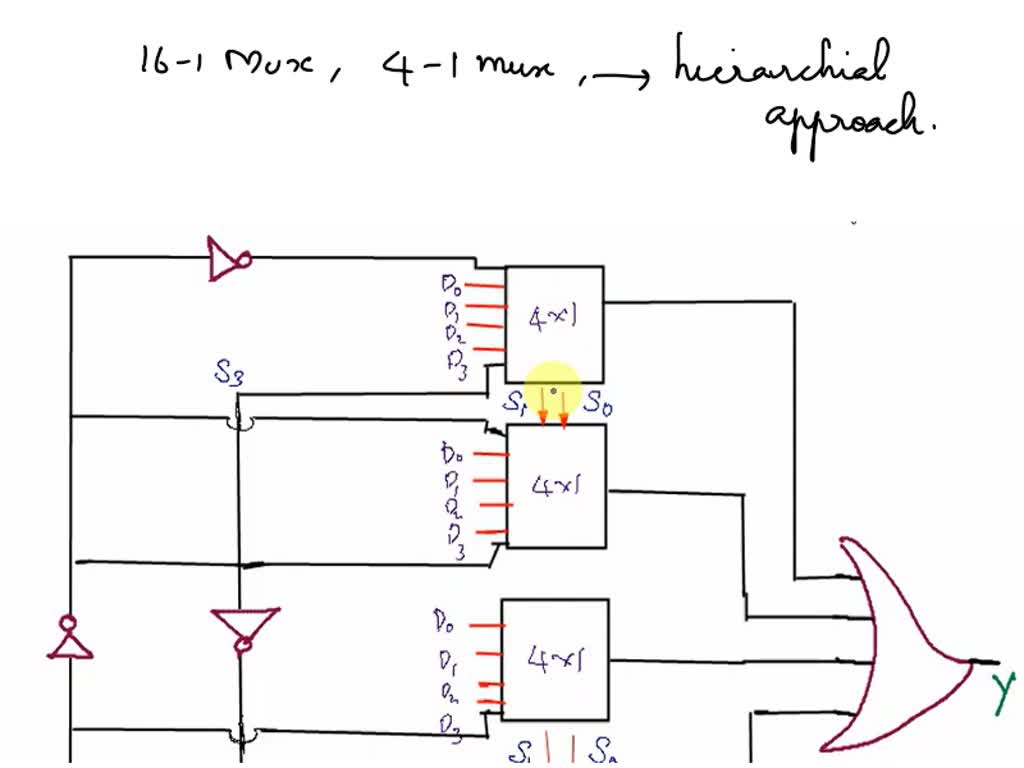 16-1 Mux, 4-1 mux, → hierarchial
approach.
D0
D1
D2
D3
4x1
S3
S1 S0
D0
D1
D2
D3
4x1
D0
D1
D2
D3
4x1
Y
S1 S0